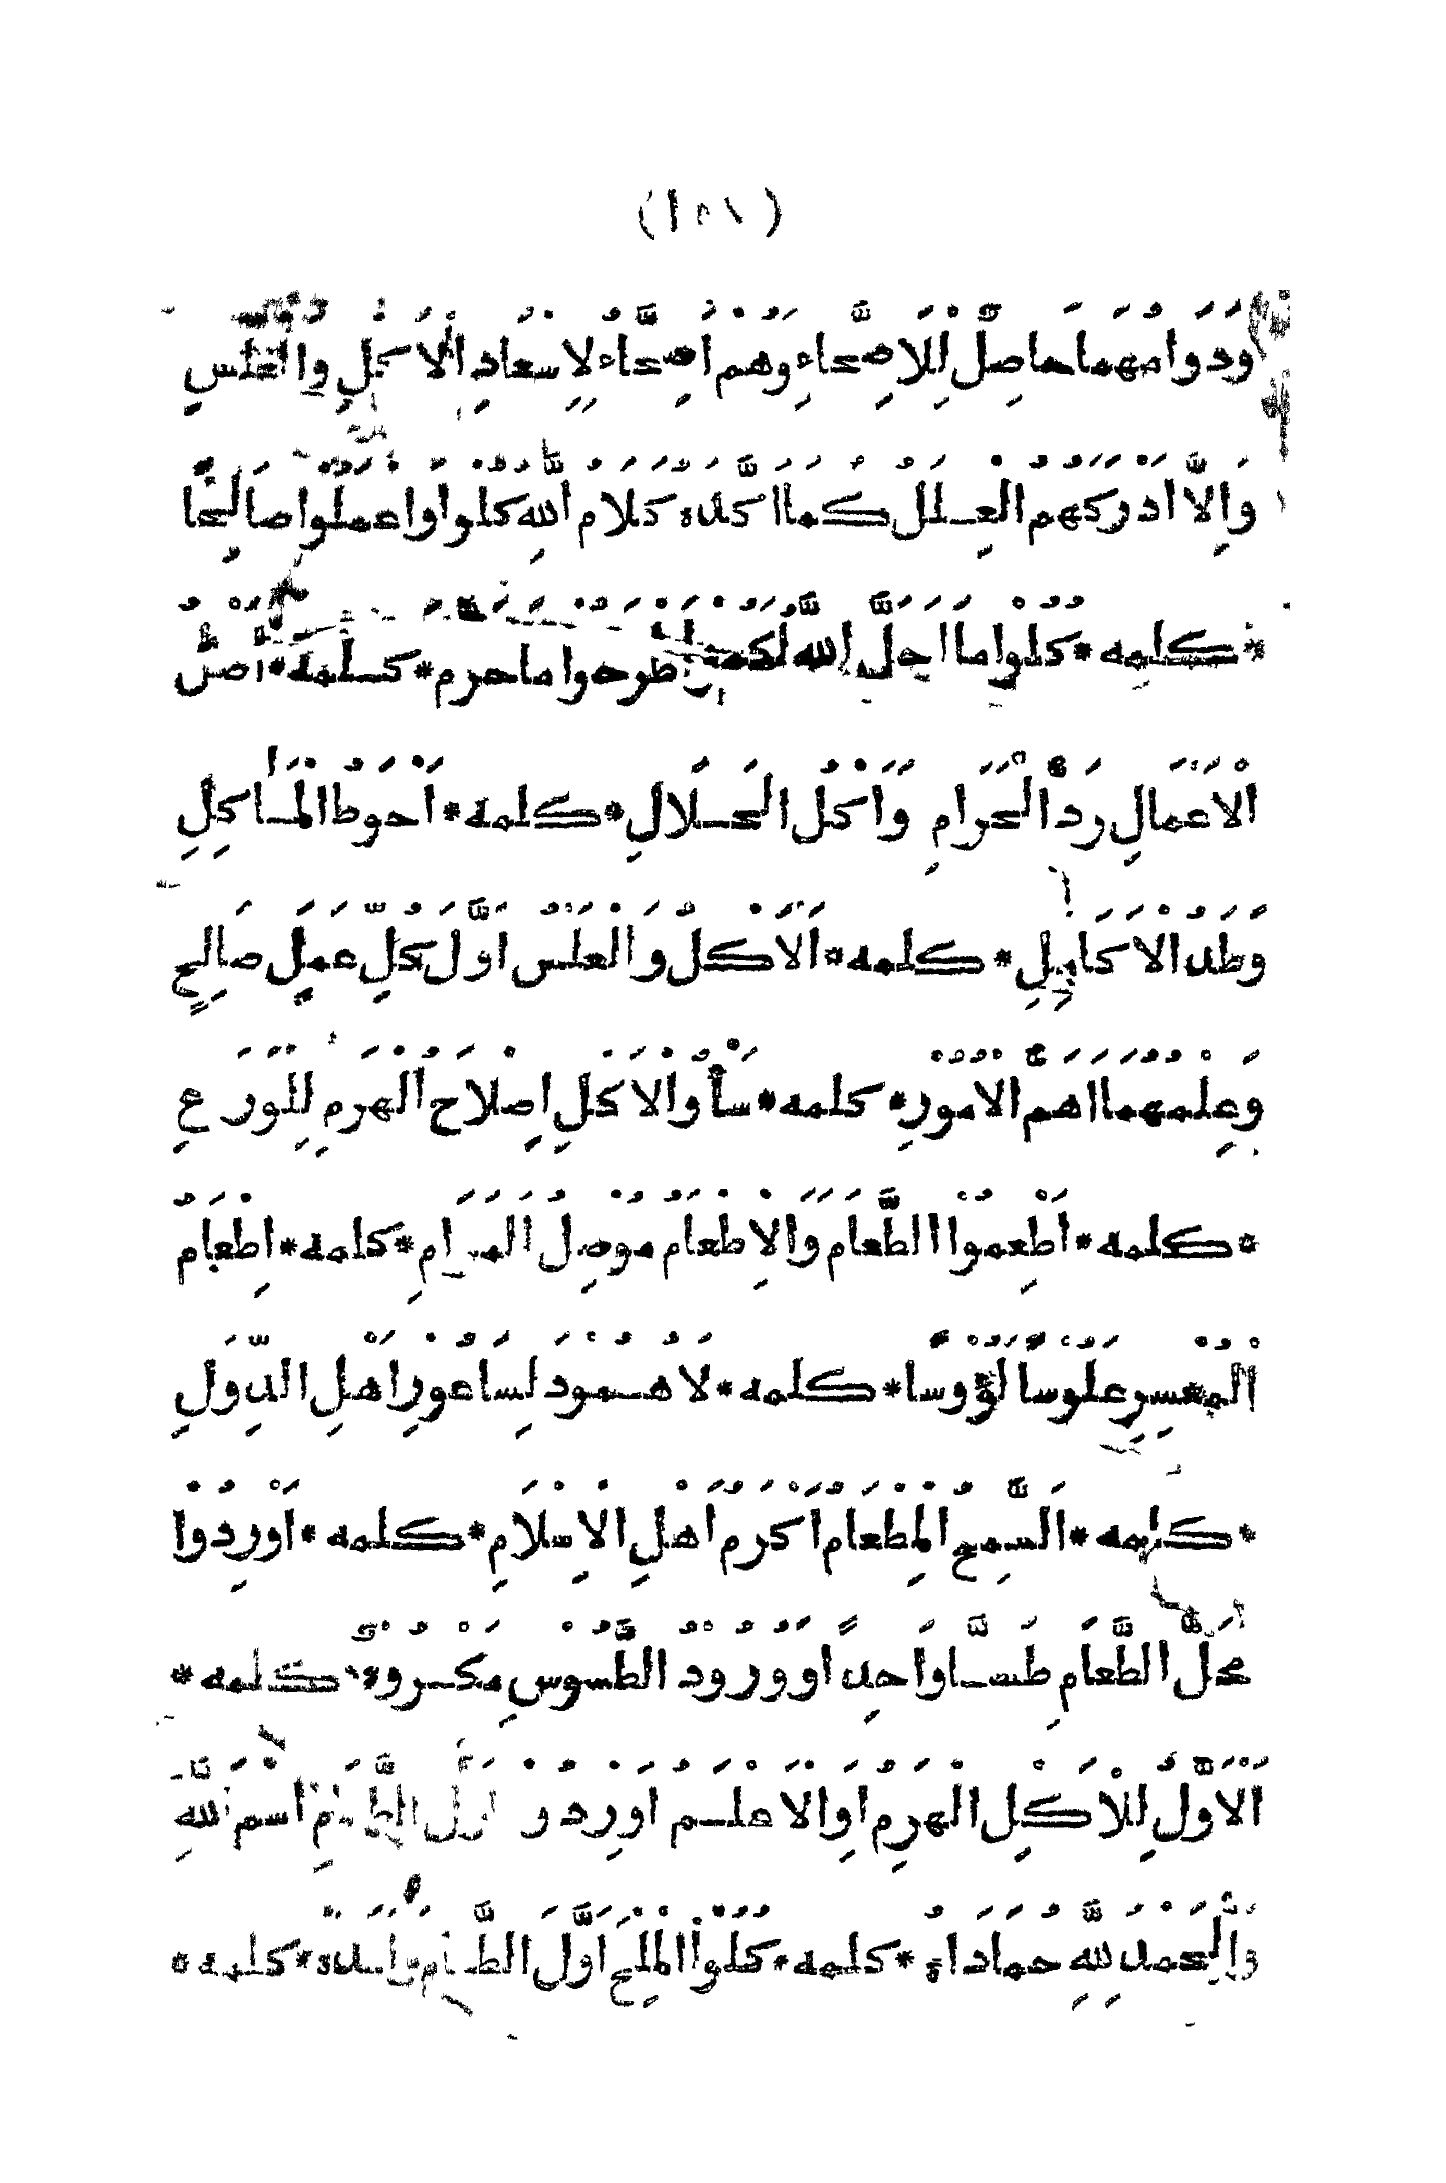 وَدَوَامُهُمَا حَاصِلٌ لِلْأَصِحَّاءِ وَهُمْ أَصِحَّاءُ لِإِسْعَادِ الْأَكْلِ وَالْعَلْسِ
وَإِلَّا أَدْرَكَهُمُ الْعِلَلُ كَمَا أَكَّدَهُ كَلَامُ اللّٰهِ كُلُوا وَاعْمَلُوا صَالِحًا
* كلمه * كُلُوا مَا أَحَلَّ اللّٰهُ لَكُمْ اطْرَحُوا مَا حَرَّمَ * كلمه * أَصْلُ
الْأَعْمَالِ رَدُّ الْحَرَامِ وَأَكْلُ الْحَلَالِ * كلمه * أَحْوَطُ الْمَأْكَلِ
وَطَدُ الْأَكَامِلِ * كلمه * الْأَكْلُ وَالْعَلْسُ أَوَّلُ كُلِّ عَمَلٍ صَالِحٍ
وَعِلْمُهُمَا أَهَمُّ الْأُمُورِ * كلمه * سَأْوُ الْأَكْلِ إِصْلَاحُ الْهَرِمِ لِلْوَرَعِ
* كلمه * أَطْعِمُوا الطَّعَامَ وَالْإِطْعَامُ مُوصِلُ الْمَرَامِ * كلمه * إِطْعَامُ
الْمُعْسِرِ عَلُوسًا لَوُوسًا * كلمه * لَا هُمُودَ لِسَاعُورِ أَهْلِ الدُّوَلِ
* كلمه * السَّمِحُ الْمِطْعَامُ أَكْرَمُ أَهْلِ الْإِسْلَامِ * كلمه * أَوْرِدُوا
مَحَلَّ الطَّعَامِ طَسًّا وَاحِدًا وَوُرُودُ الطُّسُوسِ مَكْرُوهٌ * كلمه *
الْأَوَّلُ لِلْأَكْلِ الْهَرِمُ أَوِ الْأَعْلَمُ أَوْرِدُوا أَوَّلَ الطَّعَامِ اسْمَ اللّٰهِ
وَالْحَمْدُ لِلّٰهِ حُمَادَاهُ * كلمه * كُلُوا الْمِلْحَ أَوَّلَ الطَّعَامِ وَأَمَدَهُ * كلمه *